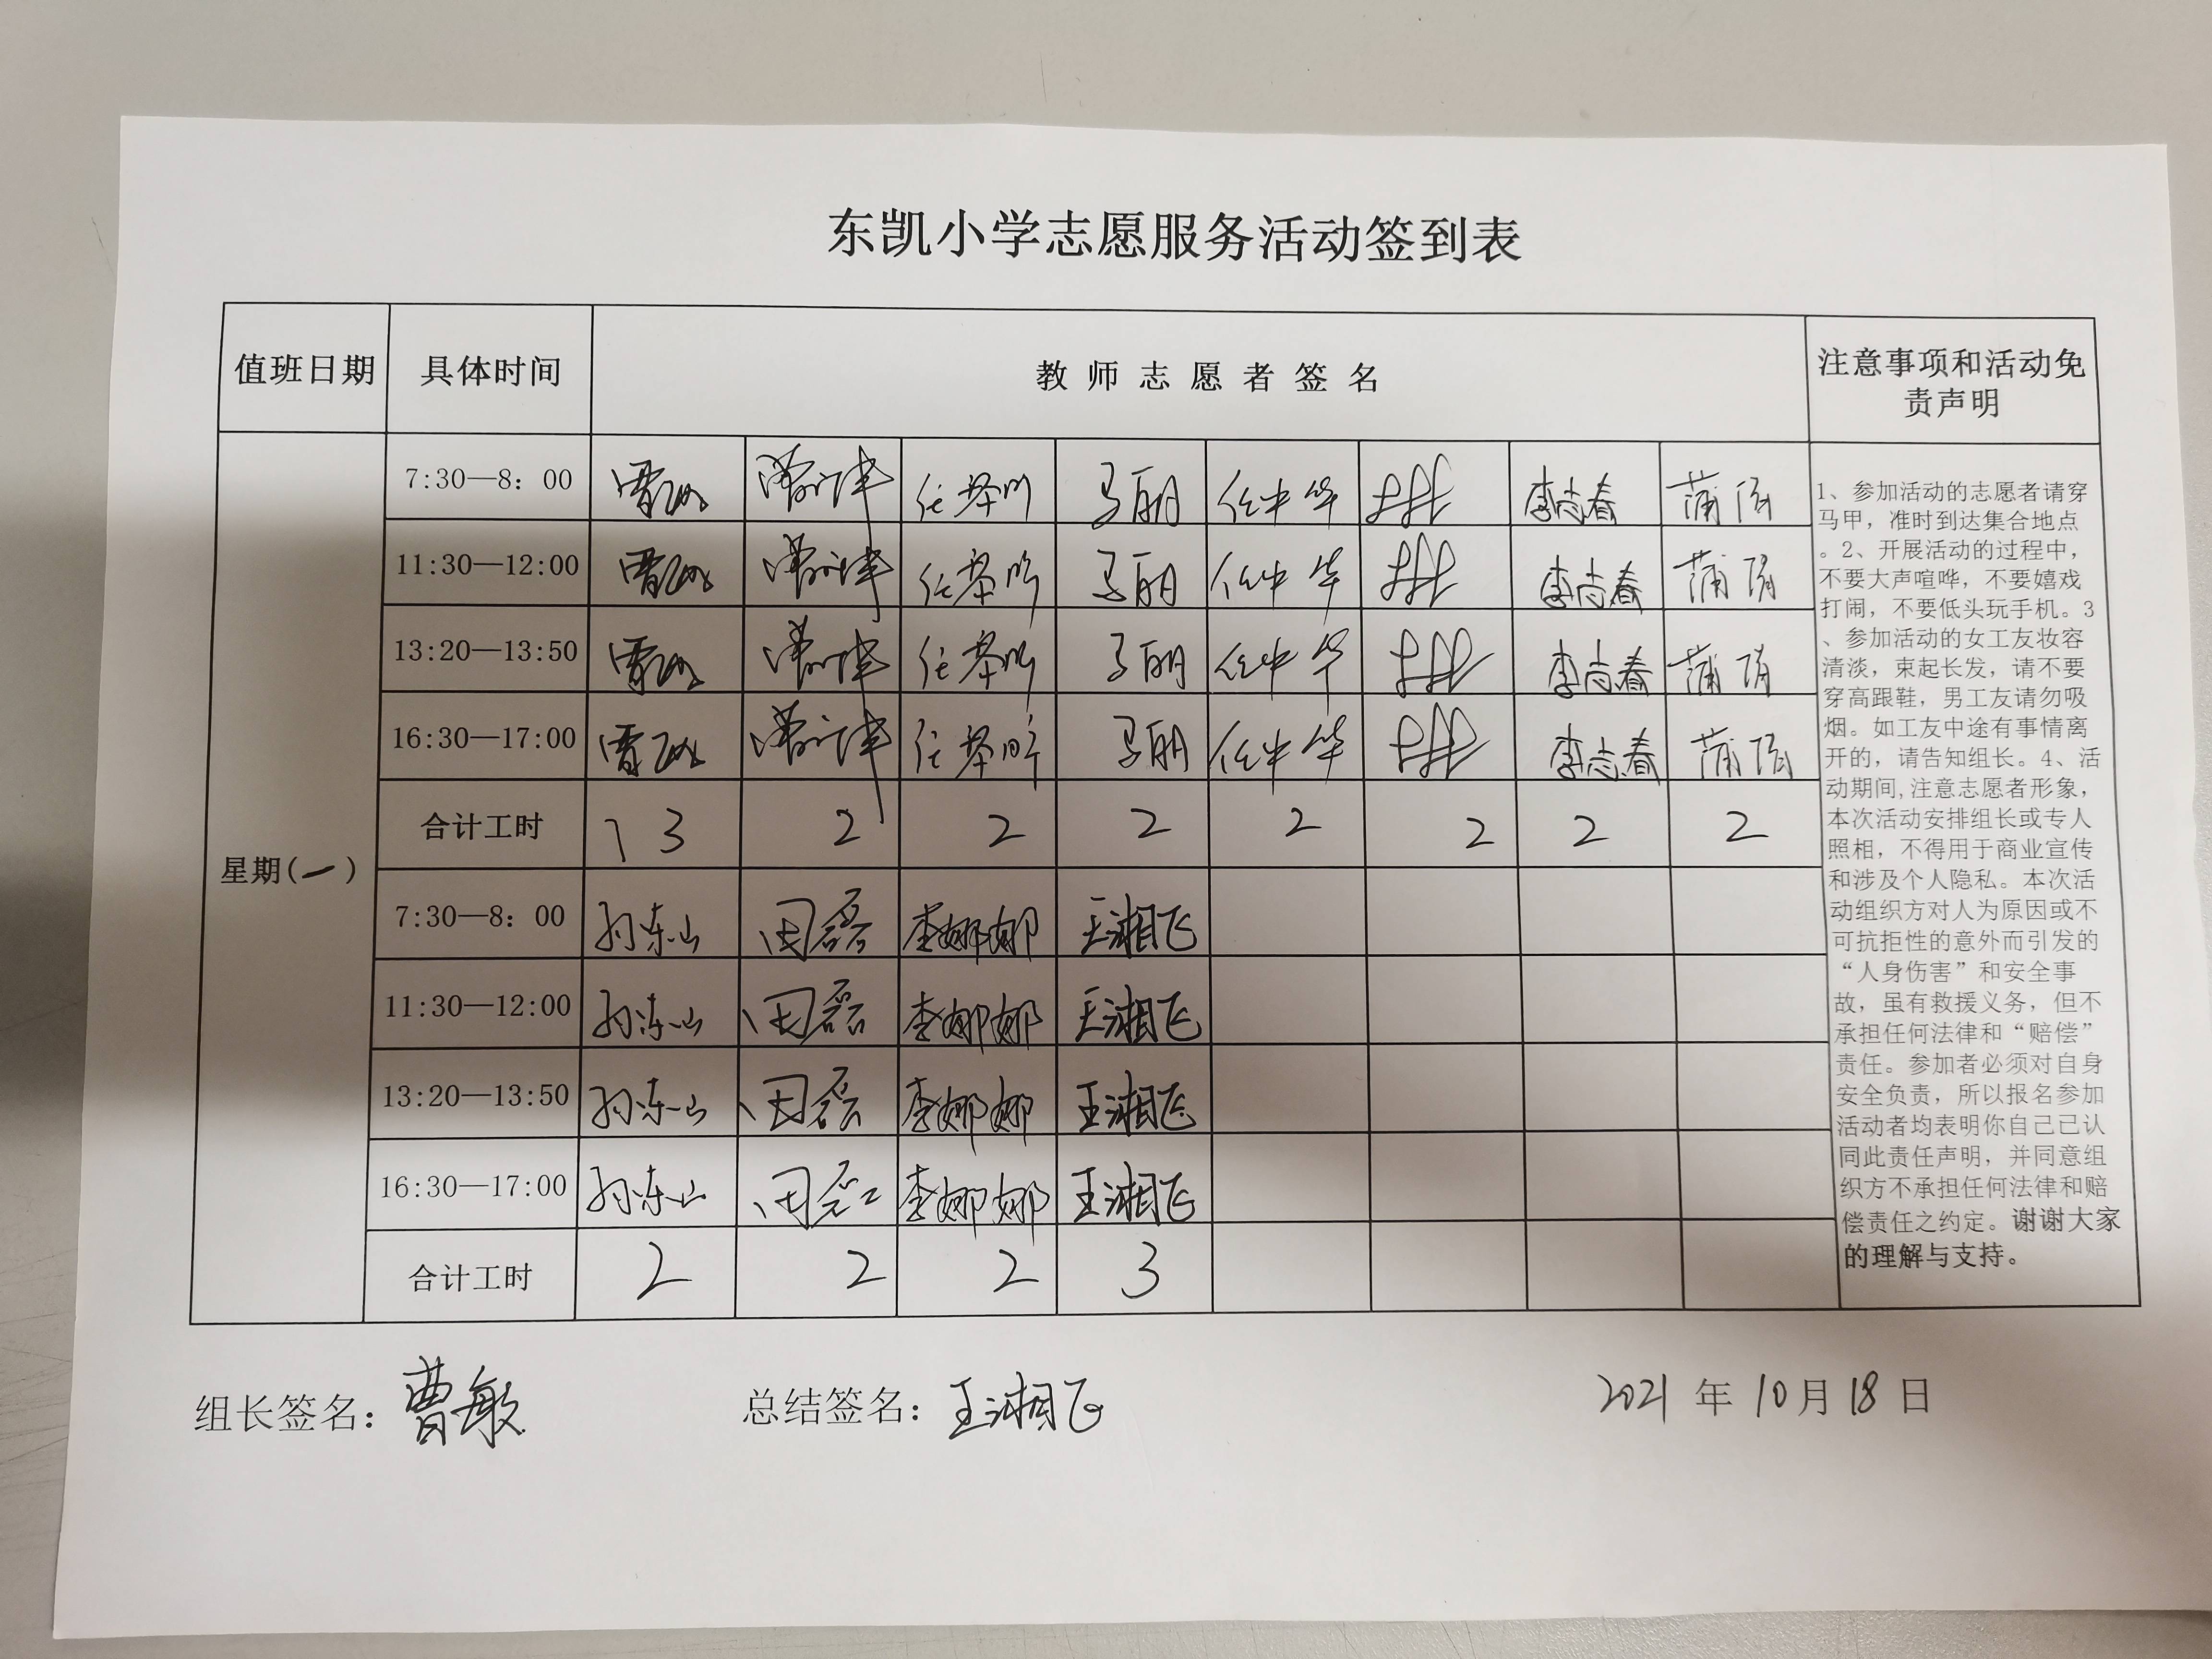 东凯小学志愿服务活动签到表
值班日期 具体时间 教师志愿者签名 注意事项和活动免
责声明
星期(一)
7:30—8：00 马丽 任中华 李志春 蒲
11:30—12:00 马丽 任中华 李志春 蒲
13:20—13:50 马丽 任中华 李志春 蒲
16:30—17:00 马丽 任中华 李志春 蒲
合计工时 3 2 2 2 2 2 2 2
7:30—8：00 孙东山 田磊 李娜娜 王湘飞
11:30—12:00 孙东山 田磊 李娜娜 王湘飞
13:20—13:50 孙东山 田磊 李娜娜 王湘飞
16:30—17:00 孙东山 田磊 李娜娜 王湘飞
合计工时 2 2 2 3
1、参加活动的志愿者请穿
马甲，准时到达集合地点
。2、开展活动的过程中，
不要大声喧哗，不要嬉戏
打闹，不要低头玩手机。3
、参加活动的女工友妆容
清淡，束起长发，请不要
穿高跟鞋，男工友请勿吸
烟。如工友中途有事情离
开的，请告知组长。4、活
动期间,注意志愿者形象，
本次活动安排组长或专人
照相，不得用于商业宣传
和涉及个人隐私。本次活
动组织方对人为原因或不
可抗拒性的意外而引发的
“人身伤害”和安全事
故，虽有救援义务，但不
承担任何法律和“赔偿”
责任。参加者必须对自身
安全负责，所以报名参加
活动者均表明你自己已认
同此责任声明，并同意组
织方不承担任何法律和赔
偿责任之约定。谢谢大家
的理解与支持。
组长签名：曹敏 总结签名：王湘飞 2021 年 10 月 18 日